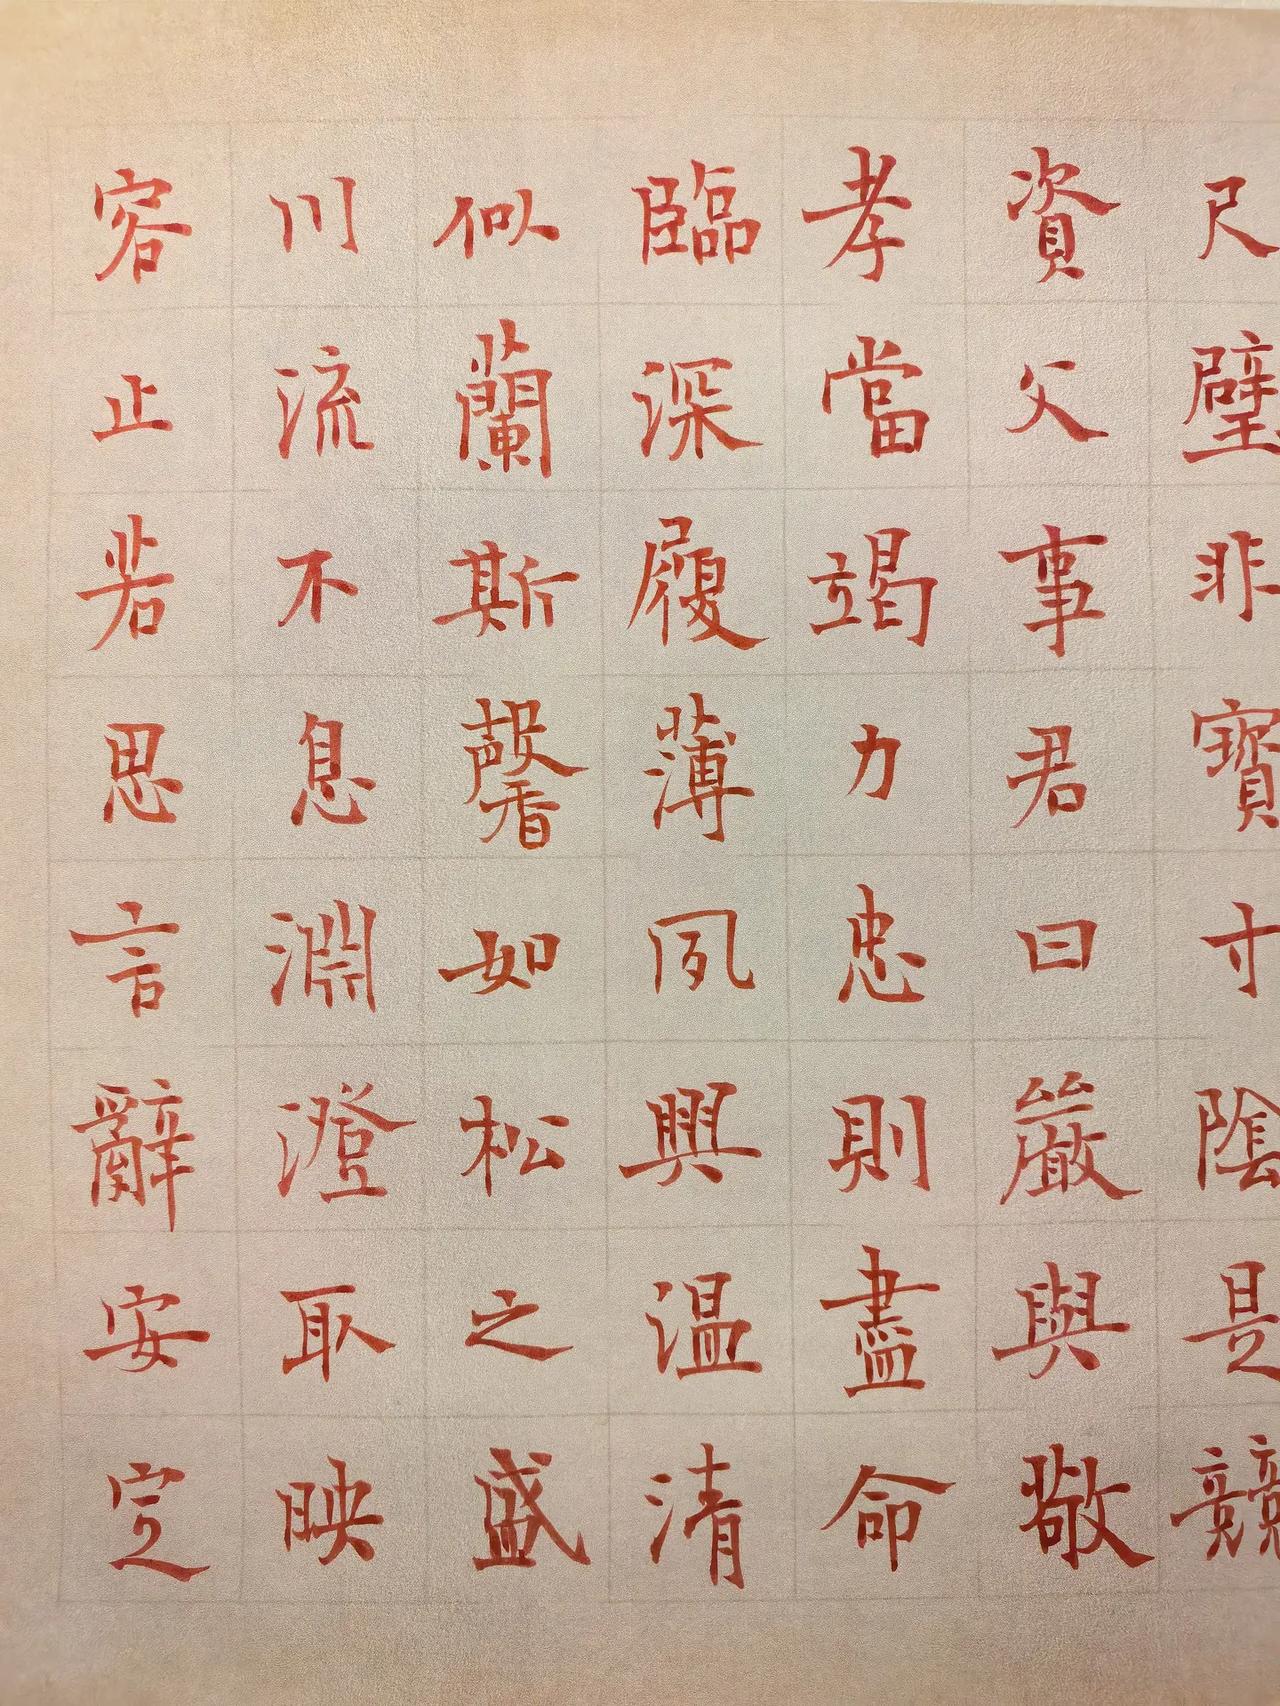 尺璧非寶寸陰是競
資父事君曰嚴與敬
孝當竭力忠則盡命
臨深履薄夙興温清
似蘭斯馨如松之盛
川流不息淵澄取映
容止若思言辭安定